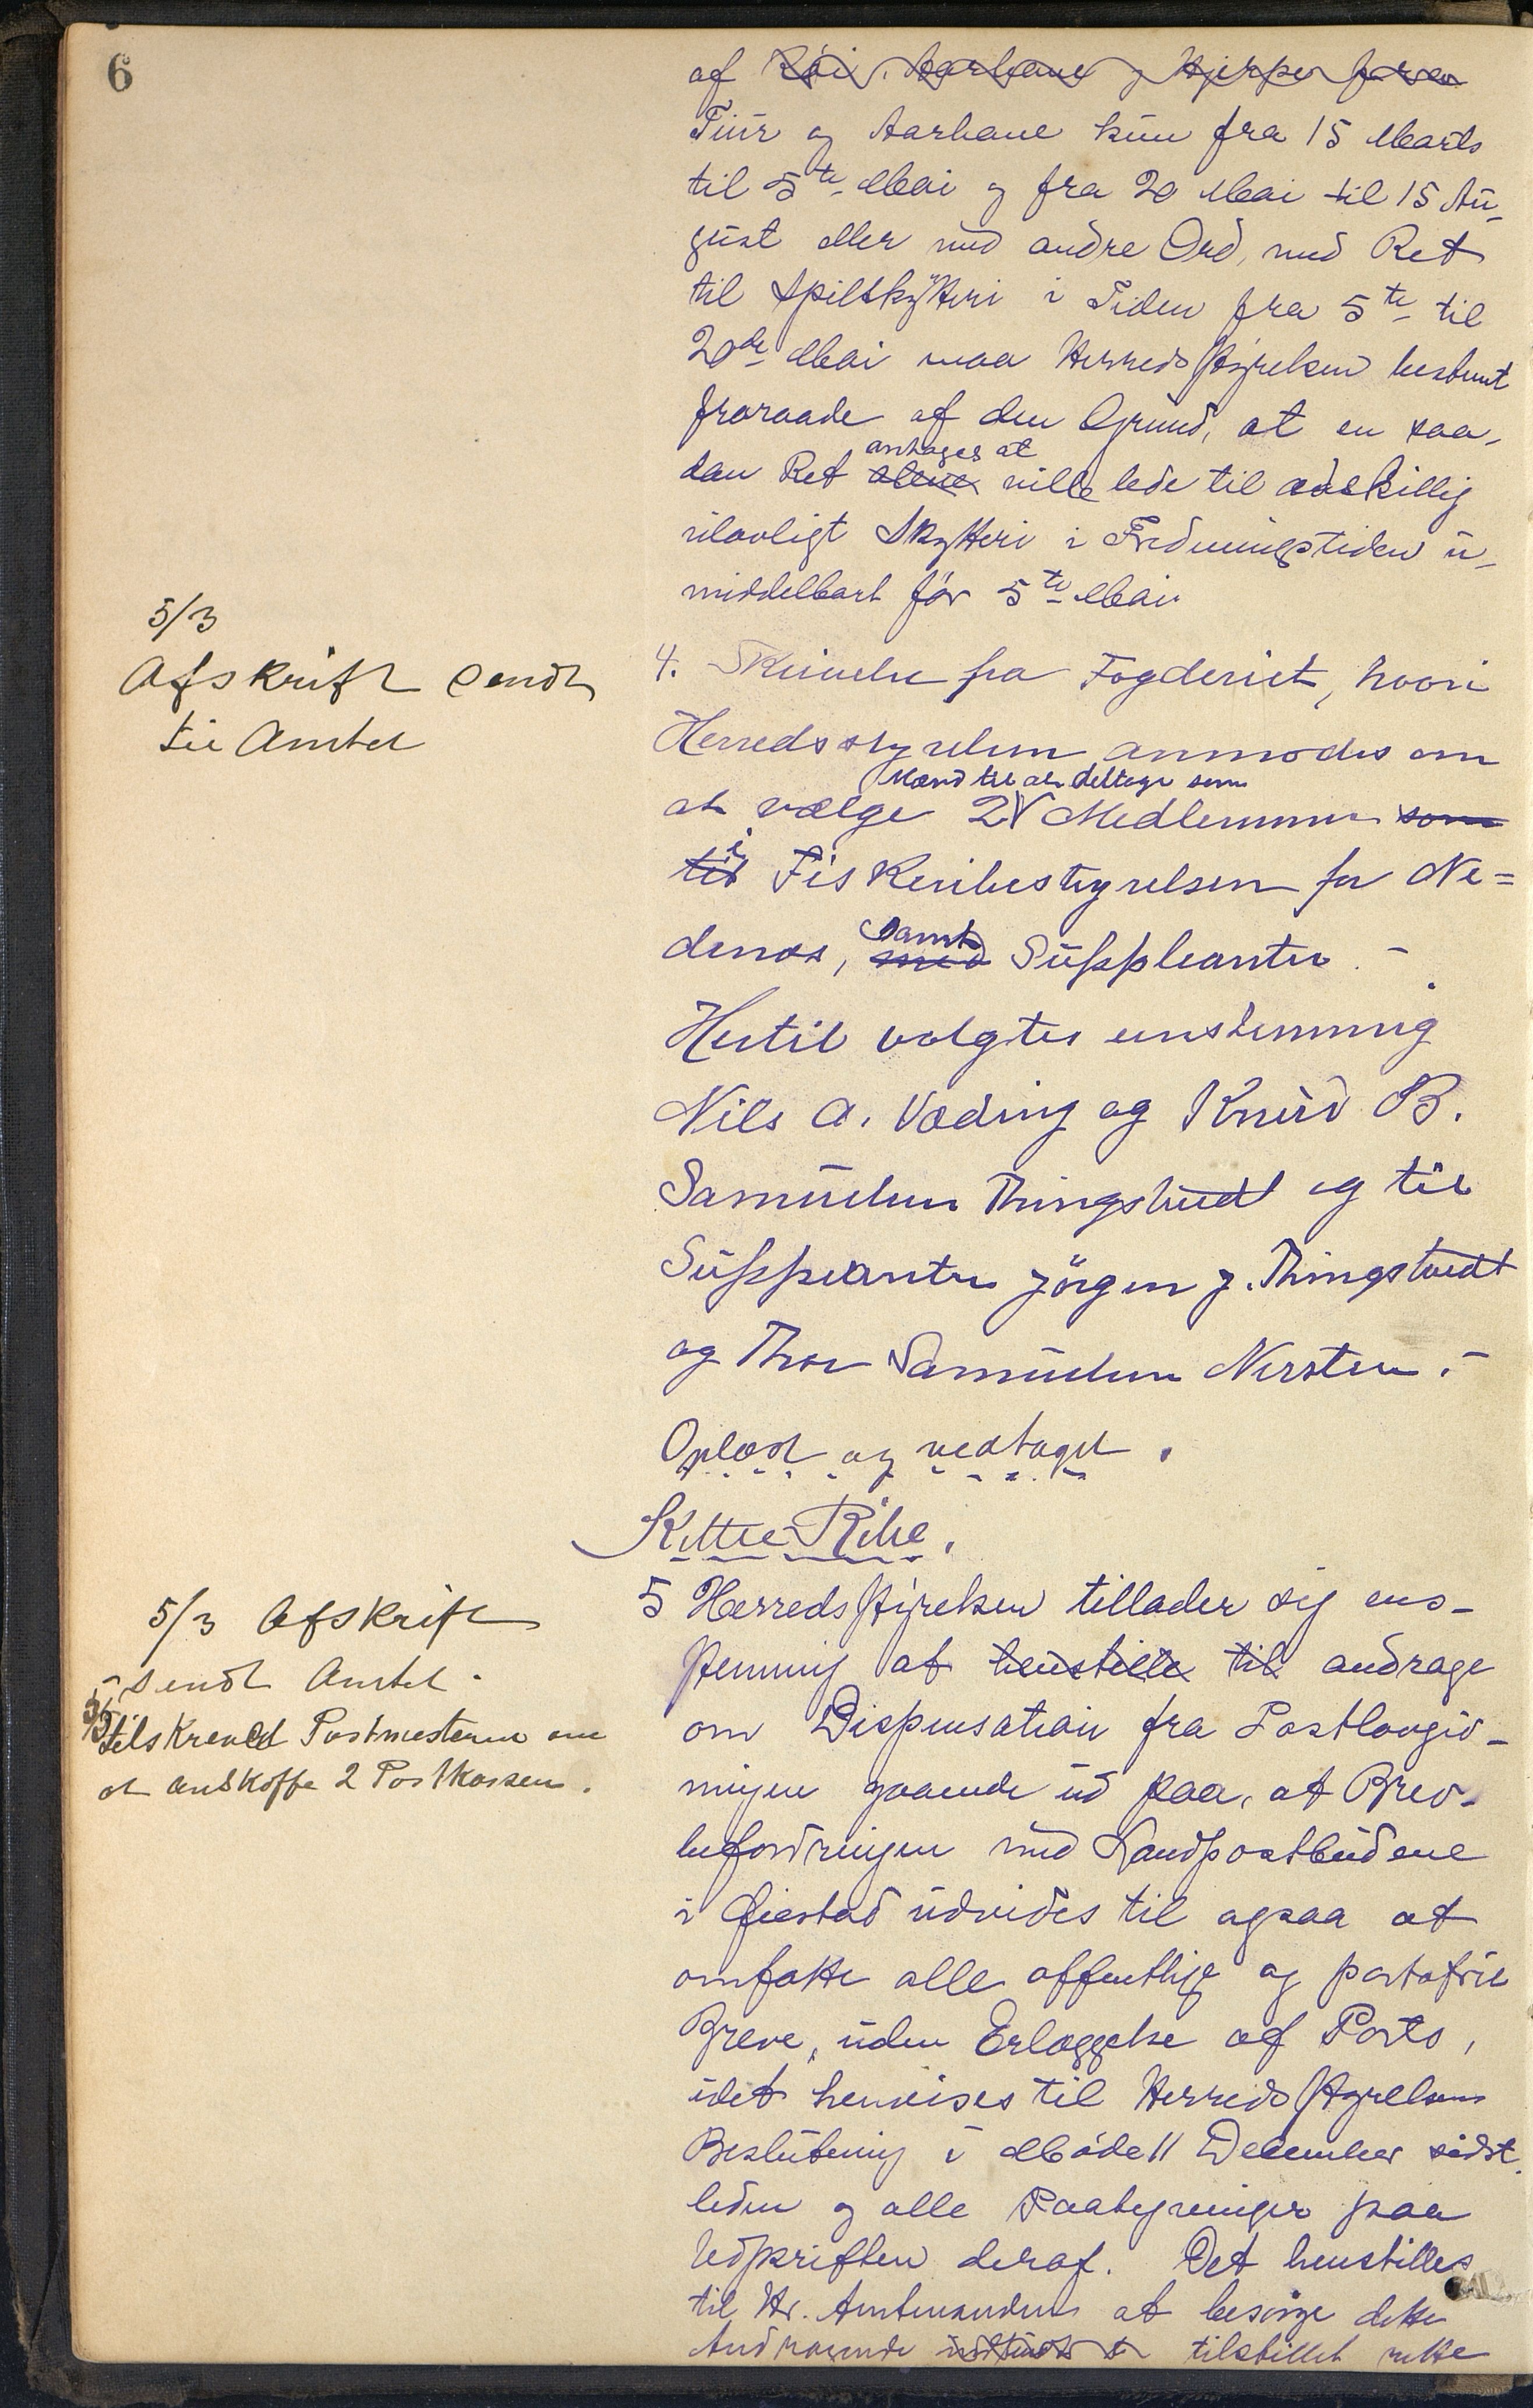 6
af Röi, Aarhane og Hjerper foraar
Tiur og Aarhane kun fra 15 Marts
til 5te Mai og fra 20 Mai til 15 Au-
gust eller med andre Ord, med Ret
til Spilskytteri i Tiden fra 5te til
20de Mai maa Herredsstyrelsen bestemt
fraraade af den Grund, at en saa-
antages at
dan Ret alene ville lede til adskillig
ulovligt Skytteri i Fredningstiden u-
middelbart før 5te Mai
5/3
Afskrift sendt
til Amtet
4. Skrivelse fra Fogderiet, hvori
Herredsstyrelsen anmodes om
Mænd til at deltage som
at vælge 2 Medlemmer som
til i Fiskeribestyrelsen for Ne=
samt
denæs, med Suppleanter.-
Hertil valgtes enstemmig
Nils A. Væding og Knud B.
Samuelsen Thingstvedt og til
Suppleanter Jörgen J. Thingstvedt
og Thor Samuelsen Nersten.-
Oplæst og vedtaget.
Kitte Ribe.
5/3 Afskrift
sendt Amtet.
5/3 Tilskrevet Postmesteren om
at anskaffe 2 Postkasser.
5 Herredsstyrelsen tillader sig ens-
stemmig at henstille til andrage
om Dispensation fra Postlovgiv-
ningen gaaende ud paa, at Brev-
befordringen med Landpostbudene
i Øiestad udvides til ogsaa at
omfatte alle offentlige og portofrie
Breve, uden Erlæggelse af Porto,
idet henvises til Herredsstyrelsens
Beslutning i Møde 11 December sidst-
leden og alle Paategninger paa
Udskriften deraf. Det henstilles
til Hr. Amtmanden at besørge dette
Andragende indsendt tilstillet rette